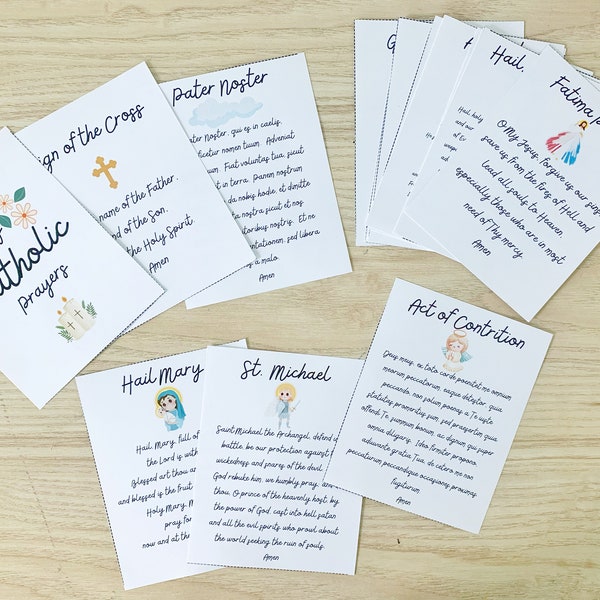 Catholic
prayers
ign of the Cross
name of the Father,
nd of the Son,
the Holy Spirit
Amen
Pater Noster
Pater Noster, qui es in caelis,
ficetur nomen tuum. Adveniat
tuum. Fiat voluntas tua, sicut
et in terra. Panem nostrum
da nobis hodie, et dimitte
nostra sicut et nos
toribus nostris. Et ne
ntationem, sed libera
a malo.
Amen
G
Hail,
Hail, holy
and our
of E
Fatima p
O My Jesus, forgive us our sins,
save us from the fires of Hell and
lead all souls to Heaven,
especially those who are in most
need of Thy mercy.
Amen
Hail Mary
Hail, Mary, full of
the Lord is with
Blessed art thou am
and blessed is the fruit
Holy Mary, M
pray for
now and at th
St. Michael
Saint Michael the Archangel, defend u
battle, be our protection against
wickedness and snares of the devil.
God rebuke him, we humbly pray, and
thou, O prince of the heavenly host, by
the power of God, cast into hell satan
and all the evil spirits who prowl about
the world seeking the ruin of souls.
Amen
Act of Contrition
Deus meus, ex toto corde paenitet me omnium
meorum peccatorum, eaque detestor, quia
peccando, non solum poenas a Te iuste
statutas promeritus sum, sed praesertim quia
offendi Te, summum bonum, ac dignum qui super
omnia diligaris. Ideo firmiter propono,
adiuvante gratia Tua, de cetero me non
peccaturum peccandique occasiones proximas
fugiturum.
Amen